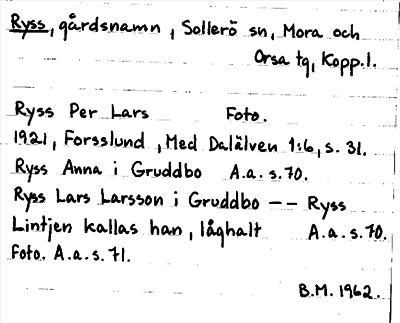 Ryss, gårdsnamn, Sollerö sn, Mora och
Orsa tg, Kopp.l.
Ryss Per Lars Foto.
1921, Forsslund, Med Dalälven 1:6, s. 31.
Ryss Anna i Gruddbo A.a.s.70.
Ryss Lars Larsson i Gruddbo -- Ryss
Lintjen kallas han, låghalt A.a.s.70.
Foto. A.a.s.71.
B.M. 1962.